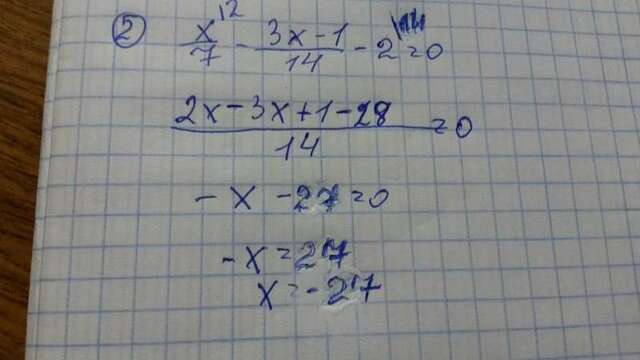 ② x/7 \2 - (3x-1)/14 - 2 \14 = 0
(2x-3x+1-28)/14 = 0
-x-27=0
-x=27
x=-27